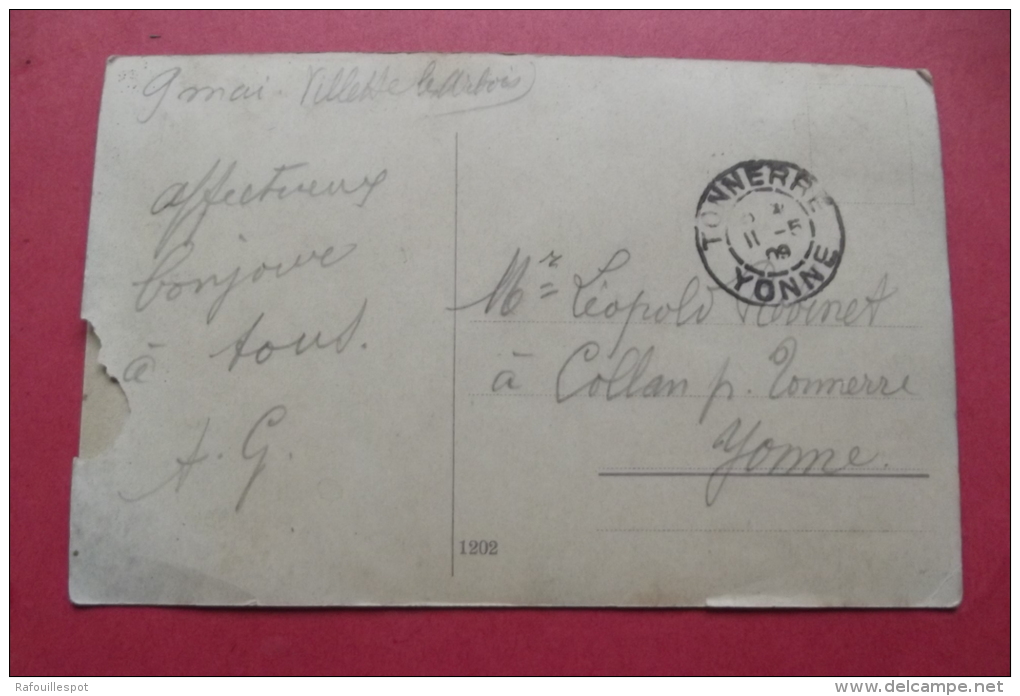 9 mai. Villette les Arbois
affectueux
bonjour
à tous.
A. G.
TONNERRE
11 -5
09
YONNE
Mr Léopold Robinet
à Collan p. Tonnerre
Yonne.
1202
Rafouillespot
www.delcampe.net